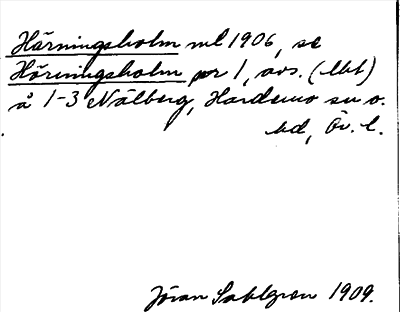 Härningsholm ml 1906, se
Höreningsholm pr 1, avs. (lbt)
å 1-3 Nälberg, Hardemo sn o.
hd, Ör. l.
Jöran Sahlgren 1909.